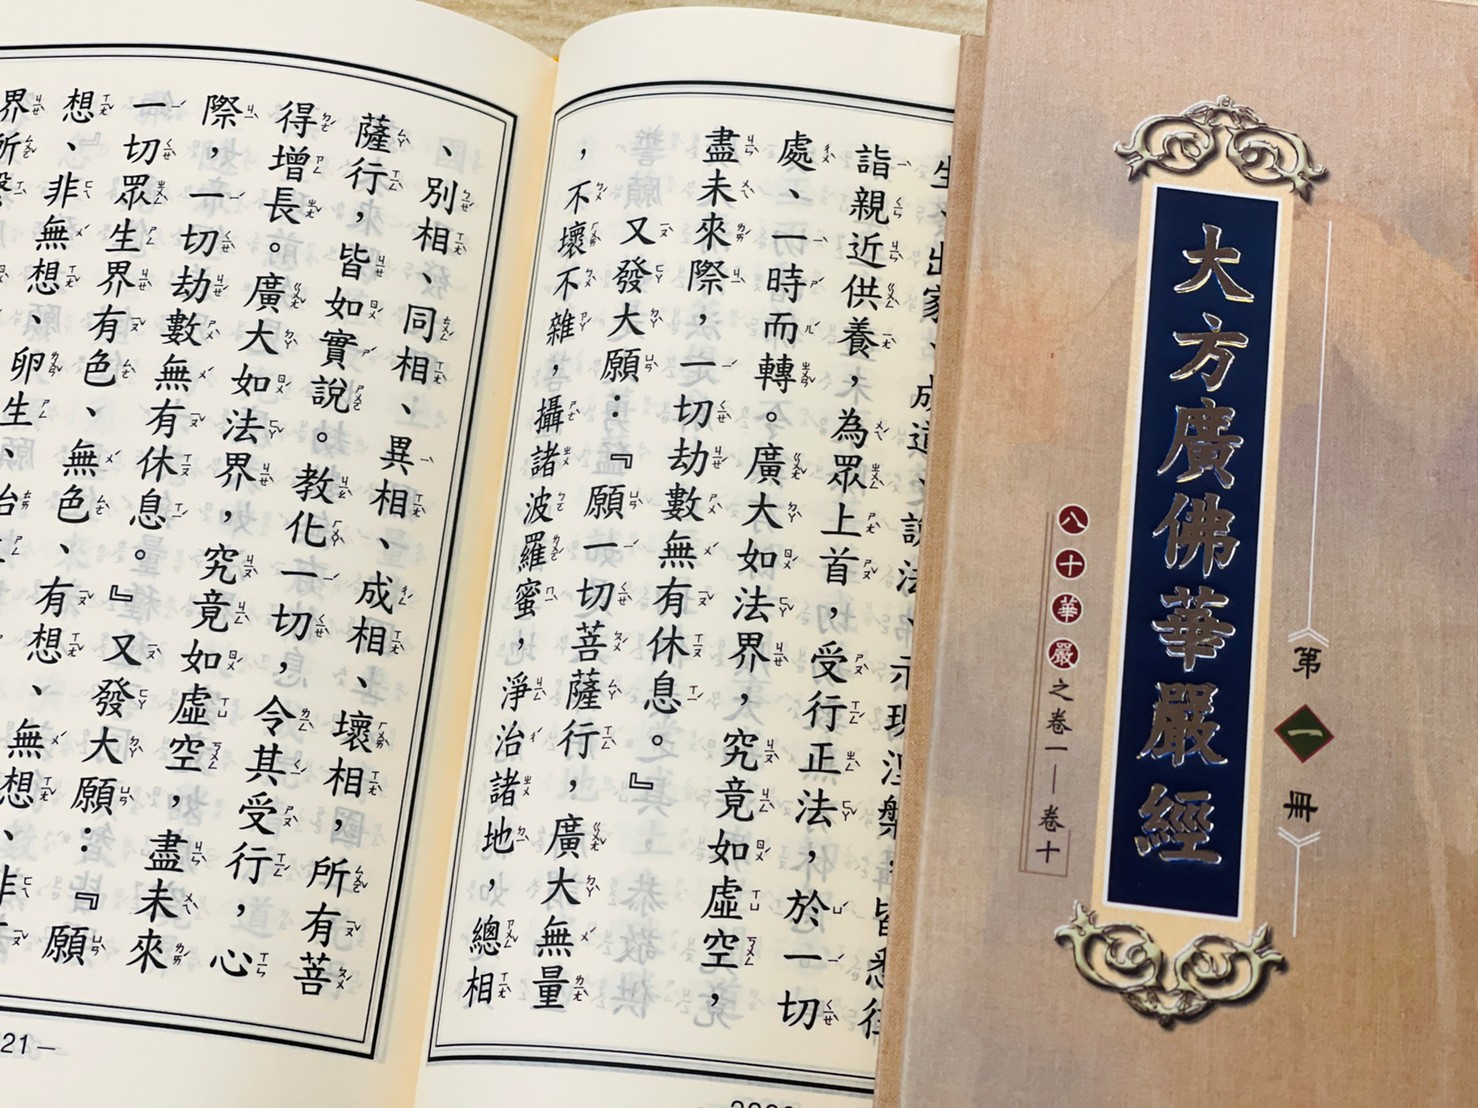 第一冊
大方廣佛華嚴經
八十華嚴之卷一—卷十
生、出家、成道、說法、示現涅槃，皆悉往
詣親近供養，為眾上首，受行正法，於一切
處、一時而轉。廣大如法界，究竟如虛空，
盡未來際，一切劫數無有休息。』
又發大願：『願一切菩薩行，廣大無量
，不壞不雜，攝諸波羅蜜，淨治諸地，總相
、別相、同相、異相、成相、壞相，所有菩
薩行，皆如實說。教化一切，令其受行，心
得增長。廣大如法界，究竟如虛空，盡未來
際，一切劫數無有休息。』又發大願：『願
一切眾生界有色、無色、有想、無想、非
想、非無想、卵生、
界所
21—